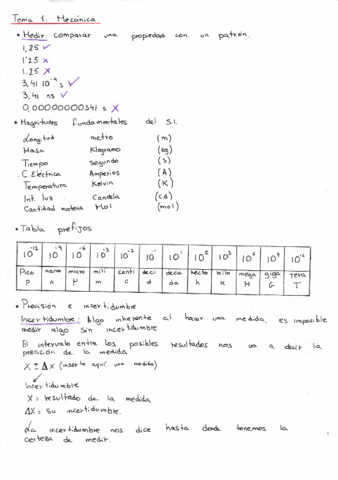 Tema 1: Mecánica
• Medir: comparar una propiedad con un patrón.
1,25 ✓
1'25 x
1.25 x
3,41 10⁻⁹ s ✓
3,41 ns ✓
0,00000000341 s X
• Magnitudes fundamentales del S.I.
Longitud metro (m)
Masa Kilogramo (kg)
Tiempo segundo (s)
C. Eléctrica Amperios (A)
Temperatura Kelvin (K)
Int. luz Candela (cd)
Cantidad materia Mol (mol)
• Tabla prefijos
10⁻¹² 10⁻⁹ 10⁻⁶ 10⁻³ 10⁻² 10⁻¹ 10¹ 10² 10³ 10⁶ 10⁹ 10¹²
Pico nano micro mili centi deci deca hecto kilo mega giga Tera
p n μ m c d da h K M G T
• Precisión e incertidumbre
Incertidumbre: Algo inherente al hacer una medida, es imposible
medir algo sin incertidumbre
El intervalo entre los posibles resultados nos va a decir la
precisión de la medida
X ± Δx (inserte aquí una medida)
Incertidumbre
X = resultado de la medida
ΔX = su incertidumbre.
La incertidumbre nos dice hasta donde tenemos la
certeza de medir.